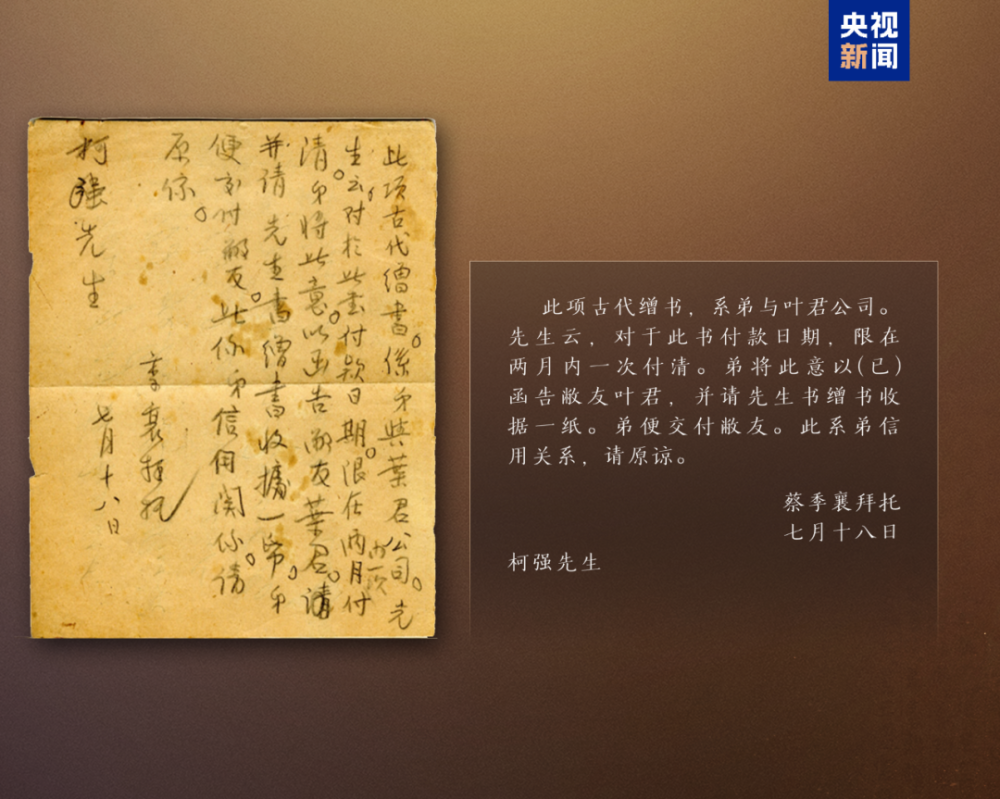 央视
新闻
此项古代缯書。係弟與葉君公司。先
生云，对於此書付款日期。限在两月内一次付
清。弟将此意以函告敝友葉君。
并请先生書缯書收據一帋。弟
便交付敝友。此係弟信用関係。请
原谅。
柯强先生
季襄拜托
七月十八日
此项古代缯书，系弟与叶君公司。
先生云，对于此书付款日期，限在
两月内一次付清。弟将此意以(已)
函告敝友叶君，并请先生书缯书收
据一纸。弟便交付敝友。此系弟信
用关系，请原谅。
蔡季襄拜托
七月十八日
柯强先生